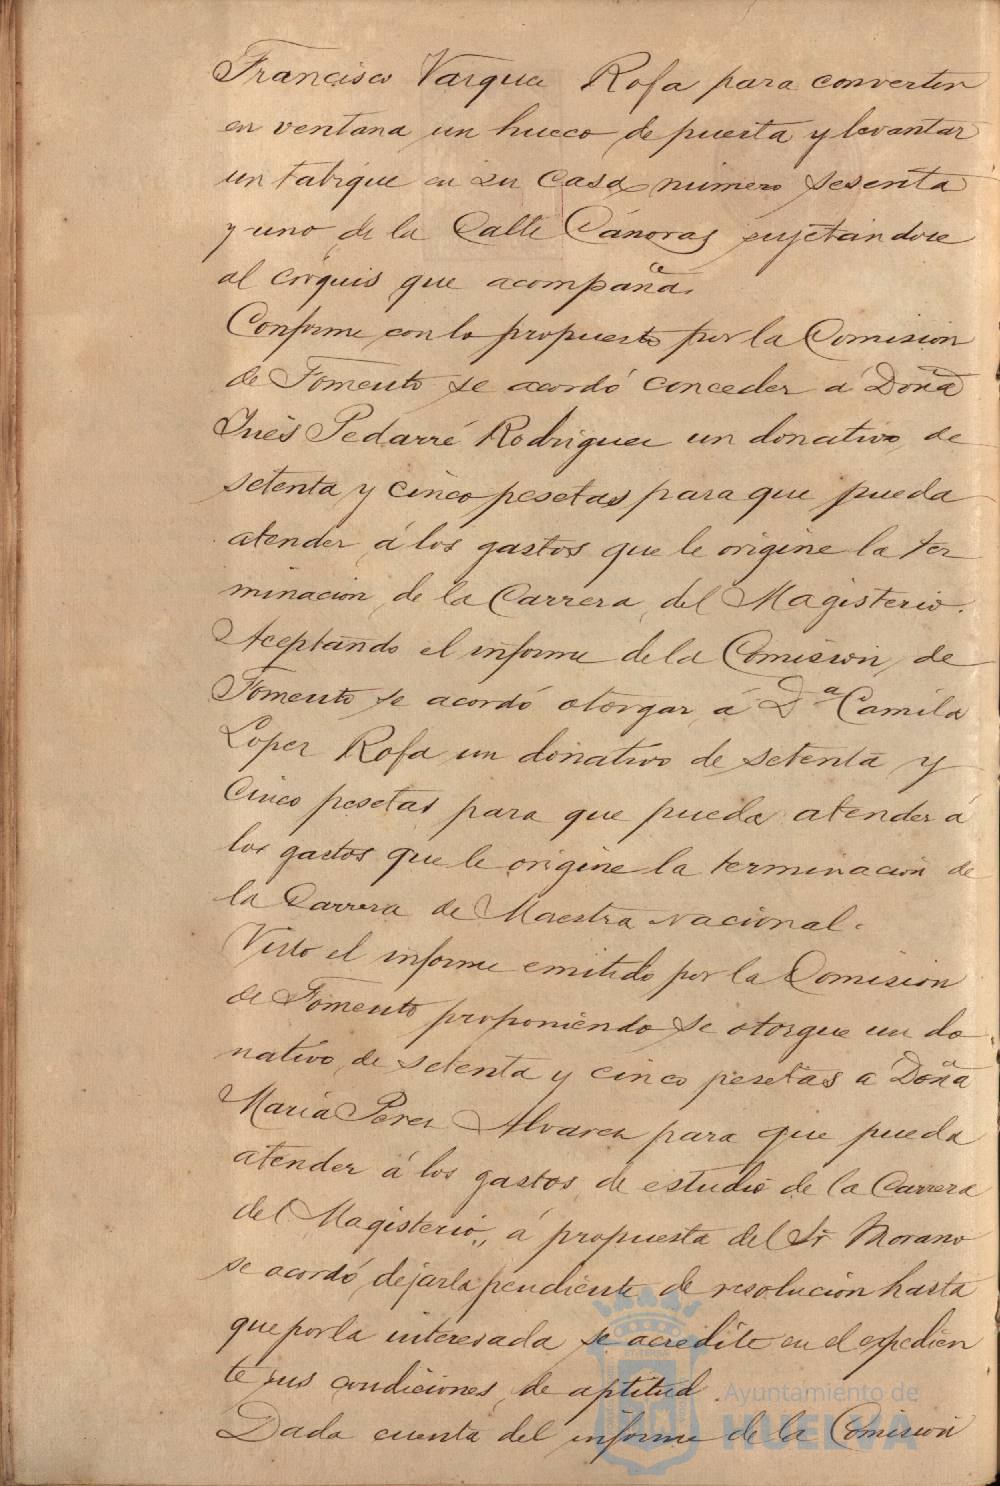 Francisco Vargues Rofa para convertir
en ventana un hueco de puerta y levantar
un tabique en su casa número sesenta
y uno de la Calle Cánovas sujetandose
al cróquis que acompaña.
Conforme con lo propuesto por la Comision
de Fomento se acordó conceder a Doña
Inés Pedarré Rodriguez un donativo de
setenta y cinco pesetas para que pueda
atender á los gastos que le origine la ter
minacion de la Carrera del Magisterio.
Aceptando el informe de la Comision de
Fomento se acordó otorgar á Dª Camila
Lopez Rofa un donativo de setenta y
Cinco pesetas para que pueda atender á
los gastos que le origine la terminacion de
la Carrera de Maestra Nacional.
Visto el informe emitido por la Comision
de Fomento proponiendo se otorgue un do
nativo de setenta y cinco pesetas a Doña
Maria Perez Alvarez para que pueda
atender á los gastos de estudio de la Carrera
del Magisterio, á propuesta del Sr Morano
se acordó dejarla pendiente de resolucion hasta
que por la interesada se acredite en el expedien
te sus condiciones de aptitud.
Dada cuenta del informe de la Comision
Ayuntamiento de
HUELVA